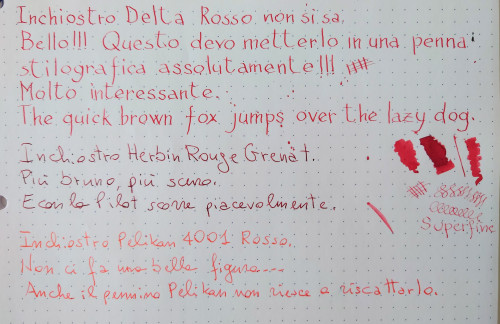 Inchiostro Delta Rosso non si sa.
Bello!!! Questo devo metterlo in una penna
stilografica assolutamente!!!
Molto interessante.
The quick brown fox jumps over the lazy dog.
Inchiostro Herbin Rouge Grenat.
Più bruno, più scuro.
E con la Pilot scorre piacevolmente.
Superfine
Inchiostro Pelikan 4001 Rosso.
Non ci fa una bella figura...
Anche il pennino Pelikan non riesce a riscattarlo.